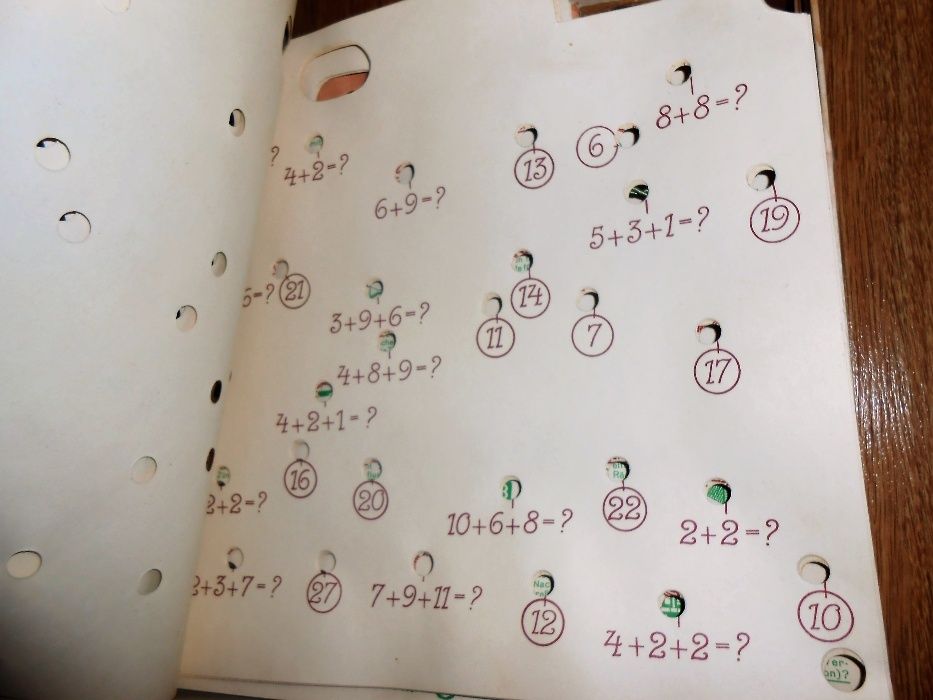 8+8=?
?
4+2=?
13
6
6+9=?
5+3+1=?
19
5=?
21
14
3+9+6=?
11
7
4+8+9=?
17
4+2+1=?
16
20
2+2=?
10+6+8=?
22
2+2=?
2+3+7=?
27
7+9+11=?
12
4+2+2=?
10